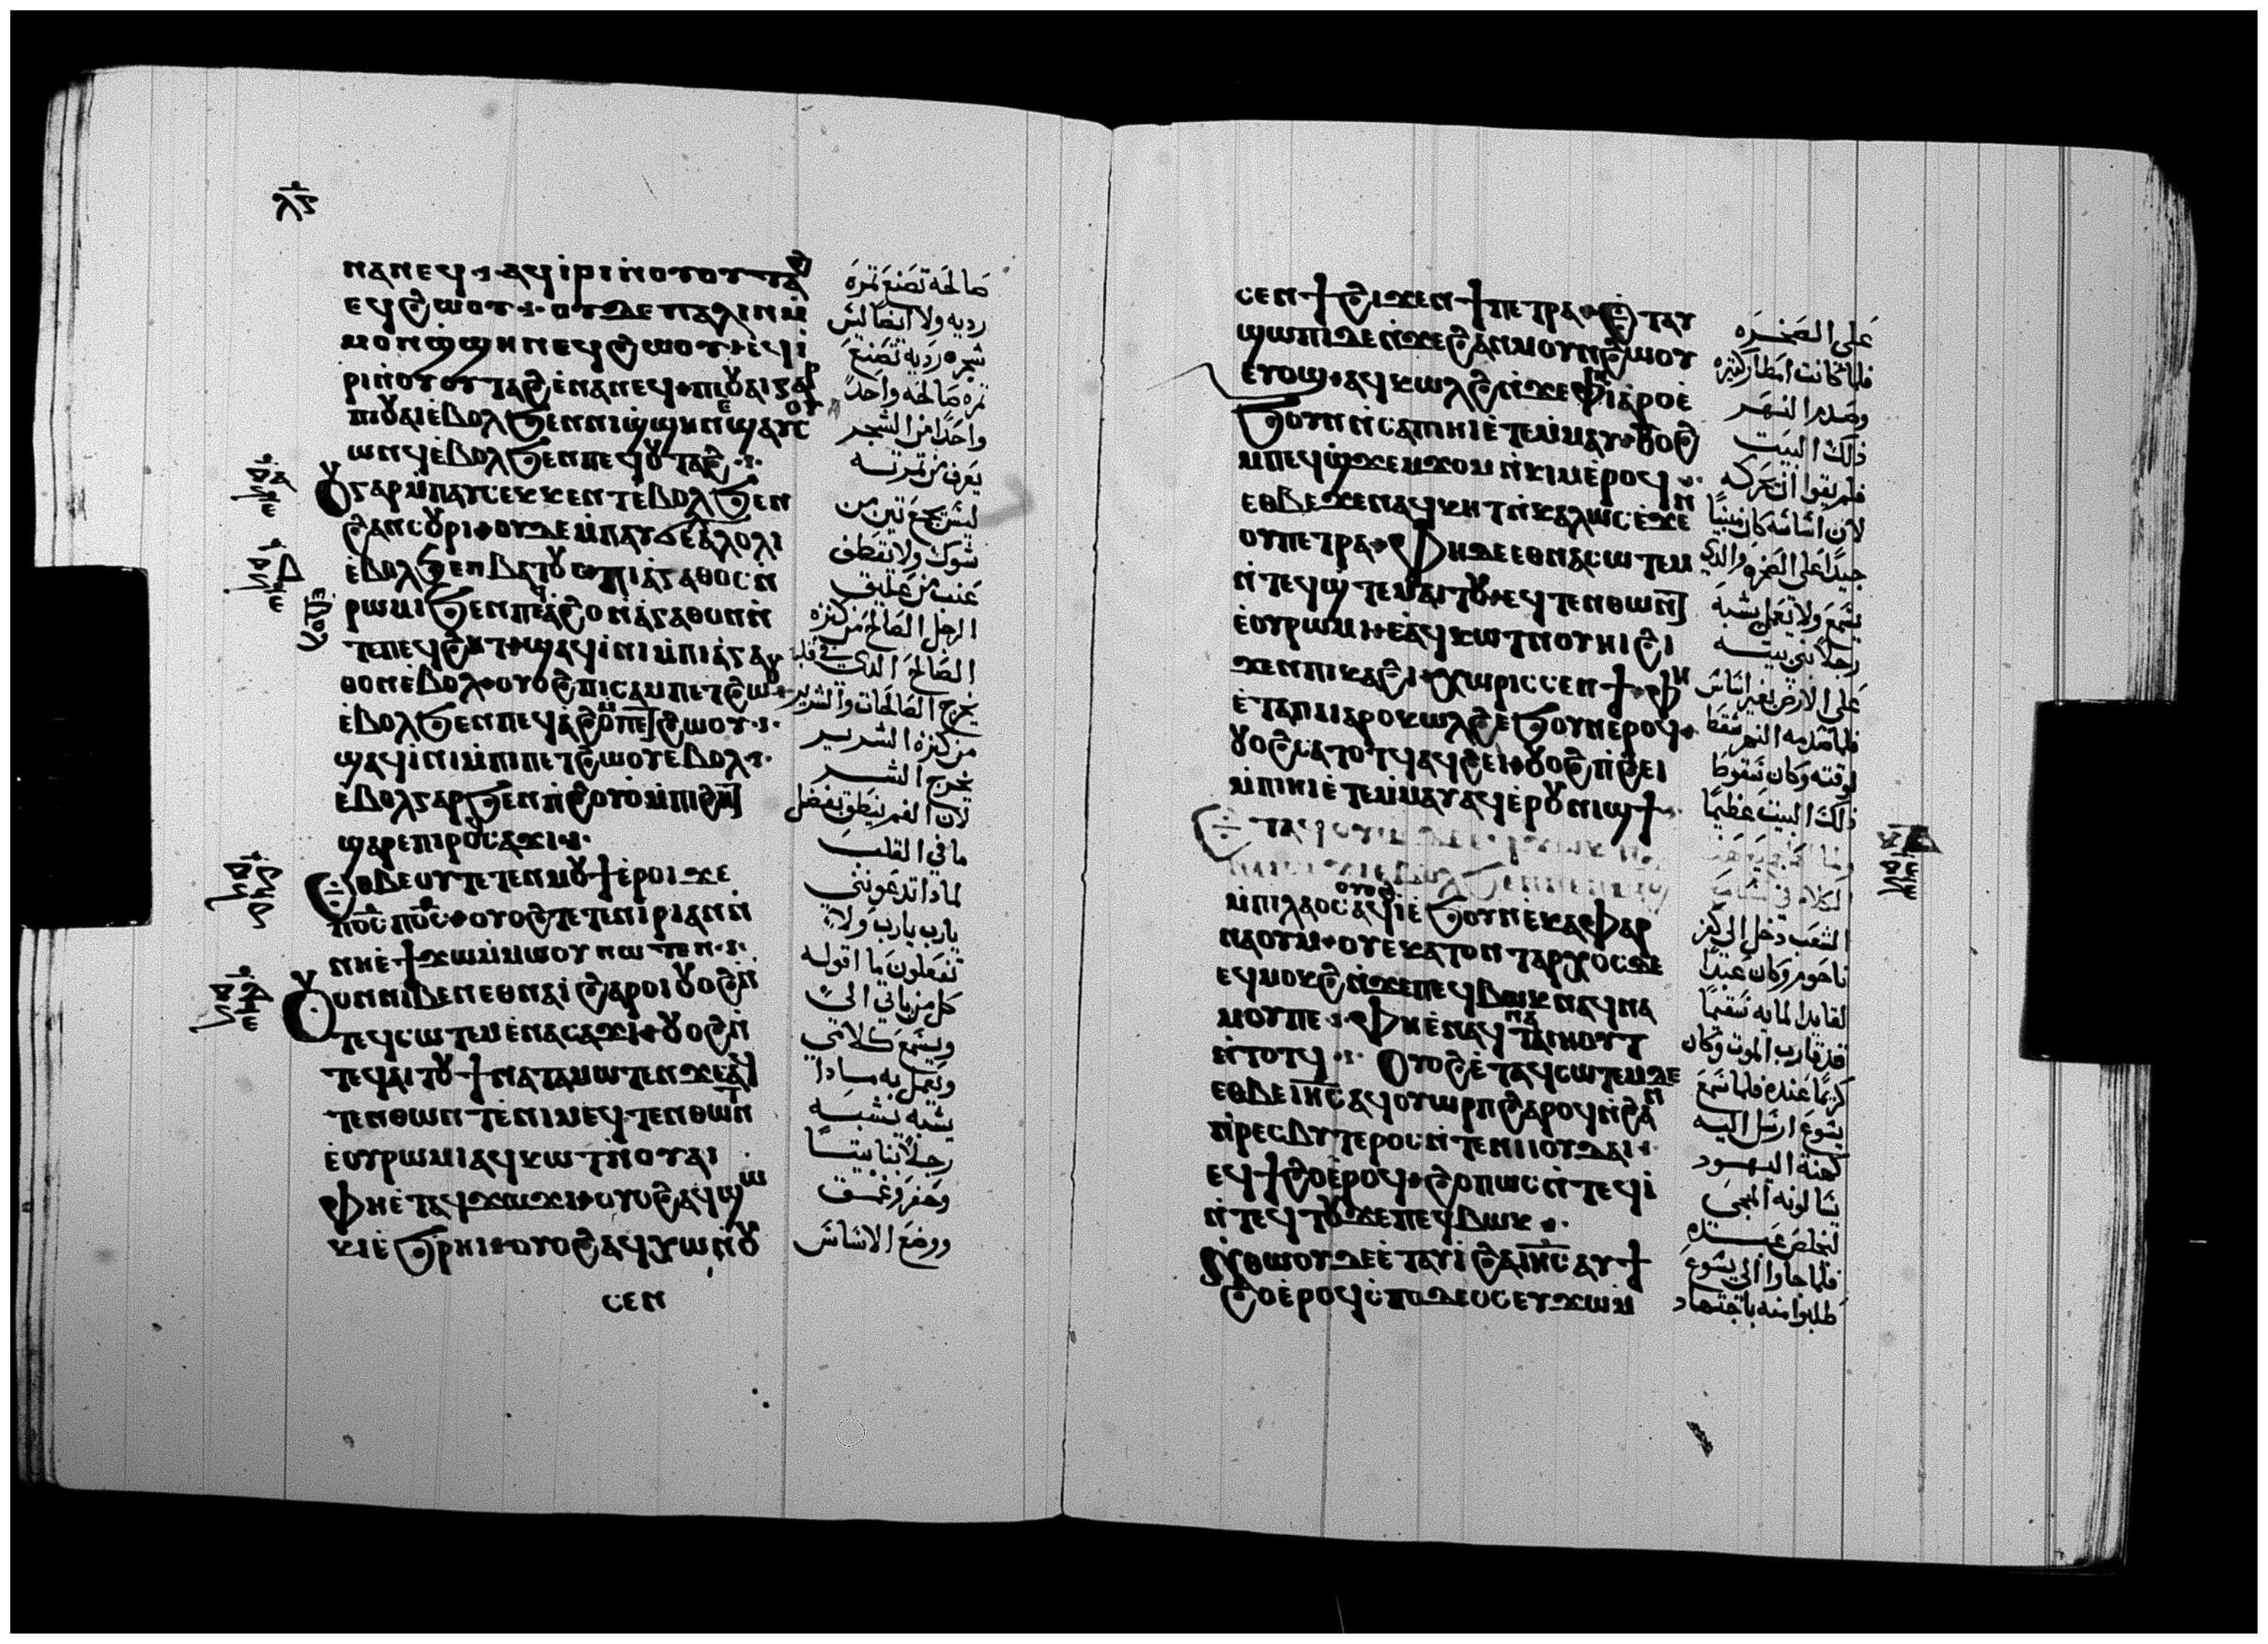 ⲗⲋ
ⲛⲁⲛⲉϥ ⲁϥⲓⲣⲓ ⲛⲟⲩⲟⲩⲧⲁϩ
ⲉϥϩⲱⲟⲩ ⲟⲩⲇⲉ ⲡⲁⲗⲓⲛ ⲙ̇
ⲙⲟⲛ ϣϣⲏⲛ ⲉϥϩⲱⲟⲩ ⲉϥⲓ̇
ⲣⲓ ⲛⲟⲩⲟⲩⲧⲁϩ ⲉ̇ⲛⲁⲛⲉϥ ⲡⲓⲟⲩⲁⲓ ⲅⲁⲣ
ⲡⲓⲟⲩⲁⲓ ⲉ̇ⲃⲟⲗ ϧⲉⲛ ⲛⲓϣϣⲏⲛ ⲉϣⲁⲩⲥⲟⲩ
ⲱⲛϥ ⲉ̇ⲃⲟⲗ ϧⲉⲛ ⲡⲉϥⲟⲩⲧⲁϩ
ⲟⲩ ⲅⲁⲣ ⲙ̇ⲡⲁⲩⲥⲉⲕ ⲕⲉⲛⲧⲉ ⲃⲟⲗ ϧⲉⲛ
ϩⲁⲛⲥⲟⲩⲣⲓ ⲟⲩⲇⲉ ⲙ̇ⲡⲁⲩϭⲉⲁ̇ⲗⲟⲗⲓ
ⲉ̇ⲃⲟⲗ ϧⲉⲛ ⲃⲁⲧⲟⲥ ⲡⲓⲁ̇ⲅⲁⲑⲟⲥ ⲛ̇
ⲣⲱⲙⲓ ϧⲉⲛ ⲡⲉϥⲁϩⲟ ⲛⲁ̇ⲅⲁⲑⲟⲛ ⲛ̇
ⲧⲉ ⲡⲉϥϩⲏⲧ ϣⲁϥⲓ̇ⲛⲓ ⲙ̇ⲡⲓⲁ̇ⲅⲁ
ⲑⲟⲛ ⲉ̇ⲃⲟⲗ ⲟⲩⲟϩ ⲡⲓⲥⲁⲙⲡⲉⲧϩⲱⲟⲩ
ⲉ̇ⲃⲟⲗ ϧⲉⲛ ⲡⲉϥⲁ̇ϩⲟ ⲙⲡⲉⲧϩⲱⲟⲩ
ϣⲁϥⲓ̇ⲛⲓ ⲙ̇ⲡⲓⲡⲉⲧϩⲱⲟⲩ ⲉⲃⲟⲗ
ⲉ̇ⲃⲟⲗ ⲅⲁⲣ ϧⲉⲛ ⲡ̇ϩⲟⲩⲟ ⲙ̇ⲡⲓϩⲏⲧ
ϣⲁⲣⲉ ⲡⲓⲣⲟ ⲥⲁϫⲓ
ⲉⲑⲃⲉ ⲟⲩ ⲧⲉⲧⲉⲛⲙⲟⲩϯ ⲉ̇ⲣⲟⲓ ϫⲉ
ⲡⲟ̅ⲥ̅ ⲡⲟ̅ⲥ̅ ⲟⲩⲟϩ ⲧⲉⲧⲉⲛⲓ̇ⲣⲓ ⲁⲛ ⲛ̇
ⲛⲏⲉ̇ϯϫⲱ ⲙ̇ⲙⲱⲟⲩ ⲛⲱⲧⲉⲛ
ⲟⲩⲟⲛ ⲛⲓⲃⲉⲛ ⲉⲑⲛⲁⲓ̇ ϩⲁⲣⲟⲓ ⲟⲩⲟϩ ⲛ̇
ⲧⲉϥⲥⲱⲧⲉⲙ ⲉ̇ⲛⲁⲥⲁϫⲓ ⲟⲩⲟϩ ⲛ̇
ⲧⲉϥⲁⲓⲧⲟⲩ ϯⲛⲁⲧⲁⲙⲱⲧⲉⲛ ϫⲉ ⲁϥ
ⲧⲉⲛⲑⲱⲛⲧ ⲉ̇ⲛⲓⲙ ⲉϥⲧⲉⲛⲑⲱⲛⲧ
ⲉ̇ⲟⲩⲣⲱⲙⲓ ⲁϥⲕⲱⲧ ⲛ̇ⲟⲩⲏⲓ
ⲫⲏⲉ̇ⲧⲁϥϫⲱϫⲓ ⲟⲩⲟϩ ⲁϥϣⲱ
ⲕⲓ ⲉ̇ϧⲣⲏⲓ ⲟⲩⲟϩ ⲁϥⲭⲱ ⲛ̇ⲟⲩ
ⲥⲉⲛ
صالحه تصنع ثمرة
رديه ولا ايضا ليس
شجره رديه تصنع
ثمره صالحه واحدا
واحدا من الشجر
يعرف من ثمرته
ليس يجمع تين من
شوك ولا تقطف
عنب من عليق
الرجل الصالح من كنزه
الصالح الذي في قلبه
يخرج الصالحات والشرير
من كنزه الشرير
يخرج الشر
لان الفم ينطق بفضل
ما في القلب
لماذا تدعونني
يارب يارب ولا
تفعلون ما اقوله
كل من ياتي الي
ويسمع كلامي
ويعمل به ماذا
يشبه يشبه
رجلا بنا بيتا
وحفر وغمق
ووضع الاساس
ⲥⲉⲛϯ ϩⲓϫⲉⲛ ϯⲡⲉⲧⲣⲁ ⲉⲧⲁⲩ
ϣⲱⲡⲓ ⲇⲉ ⲛ̇ϫⲉ ϩⲁⲛⲙⲟⲩⲛϩⲱⲟⲩ
ⲉⲩⲟϣ ⲁϥⲕⲱⲗϩ ⲛ̇ϫⲉ ⲫⲓⲁⲣⲟ ⲉ̇
ϧⲟⲩⲛ ⲛ̇ⲥⲁ ⲡⲓⲏⲓ ⲉ̇ⲧⲉⲙ̇ⲙⲁⲩ ⲟⲩⲟϩ
ⲙ̇ⲡⲉϥϣϫⲉⲙϫⲟⲙ ⲛ̇ⲕⲓⲙ ⲉ̇ⲣⲟϥ
ⲉⲑⲃⲉ ϫⲉ ⲛⲁϥⲕⲏⲧ ⲛ̇ⲕⲁⲗⲱⲥ ⲉ̇ϫⲉⲛ
ⲟⲩⲡⲉⲧⲣⲁ ⲫⲏ ⲇⲉ ⲉⲑⲛⲁⲥⲱⲧⲉⲙ
ⲛ̇ⲧⲉϥϣⲧⲉⲙⲁⲓⲧⲟⲩ ⲉϥⲧⲉⲛⲑⲱⲛⲧ
ⲉ̇ⲟⲩⲣⲱⲙⲓ ⲉ̇ⲁϥⲕⲱⲧ ⲛⲟⲩⲏⲓ ϩⲓ
ϫⲉⲛ ⲡⲓⲕⲁϩⲓ ⲭⲱⲣⲓⲥ ⲥⲉⲛϯ ⲫⲏ
ⲉ̇ⲧⲁ ⲡⲓⲓⲁⲣⲟ ⲕⲱⲗϩ ⲉ̇ϧⲟⲩⲛ ⲉⲣⲟϥ
ⲟⲩⲟϩ ⲥⲁⲧⲟⲧϥ ⲁϥϩⲉⲓ ⲟⲩⲟϩ ⲡ̇ϩⲉⲓ
ⲙ̇ⲡⲓⲏⲓ ⲉ̇ⲧⲉⲙ̇ⲙⲁⲩ ⲁϥⲉⲣⲟⲩⲛⲓϣϯ
ⲙ̇ⲡⲓⲗⲁⲟⲥ ⲟⲩⲟϩ ⲁϥⲓ̇ ⲉ̇ϧⲟⲩⲛ ⲉ̇ⲕⲁⲫⲁⲣ
ⲛⲁⲟⲩⲙ ⲟⲩⲉⲕⲁⲧⲟⲛⲧⲁⲣⲭⲟⲥ ⲇⲉ
ⲉϥⲙⲟⲕϩ ⲛ̇ϫⲉ ⲡⲉϥⲃⲱⲕ ⲛⲁϥⲛⲁ
ⲙⲟⲩ ⲡⲉ ⲫⲏⲉ̇ⲛⲁϥⲧⲁⲓⲏⲟⲩⲧ
ⲛ̇ⲧⲟⲧϥ ⲟⲩⲟϩ ⲉ̇ⲧⲁϥⲥⲱⲧⲉⲙ ⲇⲉ
ⲉⲑⲃⲉ ⲓⲏ̅ⲥ̅ ⲁϥⲟⲩⲱⲣⲡ ϩⲁⲣⲟϥ ⲛ̇ϩⲁⲛ
ⲡ̇ⲣⲉⲥⲃⲩⲧⲉⲣⲟⲥ ⲛ̇ⲧⲉ ⲛⲓⲓⲟⲩⲇⲁⲓ
ⲉϥϯϩⲟ ⲉ̇ⲣⲟϥ ϩⲟⲡⲱⲥ ⲛ̇ⲧⲉϥⲓ̇
ⲛ̇ⲧⲉϥⲧⲟⲩϫⲉ ⲡⲉϥⲃⲱⲕ
ⲛ̇ⲑⲱⲟⲩ ⲇⲉ ⲉ̇ⲧⲁⲩⲓ̇ ϩⲁ ⲓⲏ̅ⲥ̅ ⲁⲩϯ
ϩⲟ ⲉ̇ⲣⲟϥ ⲥⲡⲟⲩⲇⲉⲟⲥ ⲉⲩϫⲱ ⲙ̇
على الصخره
فلما كانت امطار كثيره
وصدم النهر
ذلك البيت
فلم يقوا ان تحركه
لان اساسه كان مبنيا
جيدا على الصخره والذي
يسمع ولا يعمل يشبه
رجلا بني بيته
على الارض بغير اساس
فلما صدمه النهر سقط
لوقته وكان سقوط
ذلك البيت عظيما
الكلام في
الشعب دخل الي كفر
ناحوم وكان عبدا
لقايد المايه سقيما
قد قارب الموت وكان
كريما عنده فلما سمع
يسوع ارسل اليه
كهنة اليهود
يسالونه المجي
ليخلص عبده
فلما جاوا الي يسوع
طلبوا منه باجتهاد